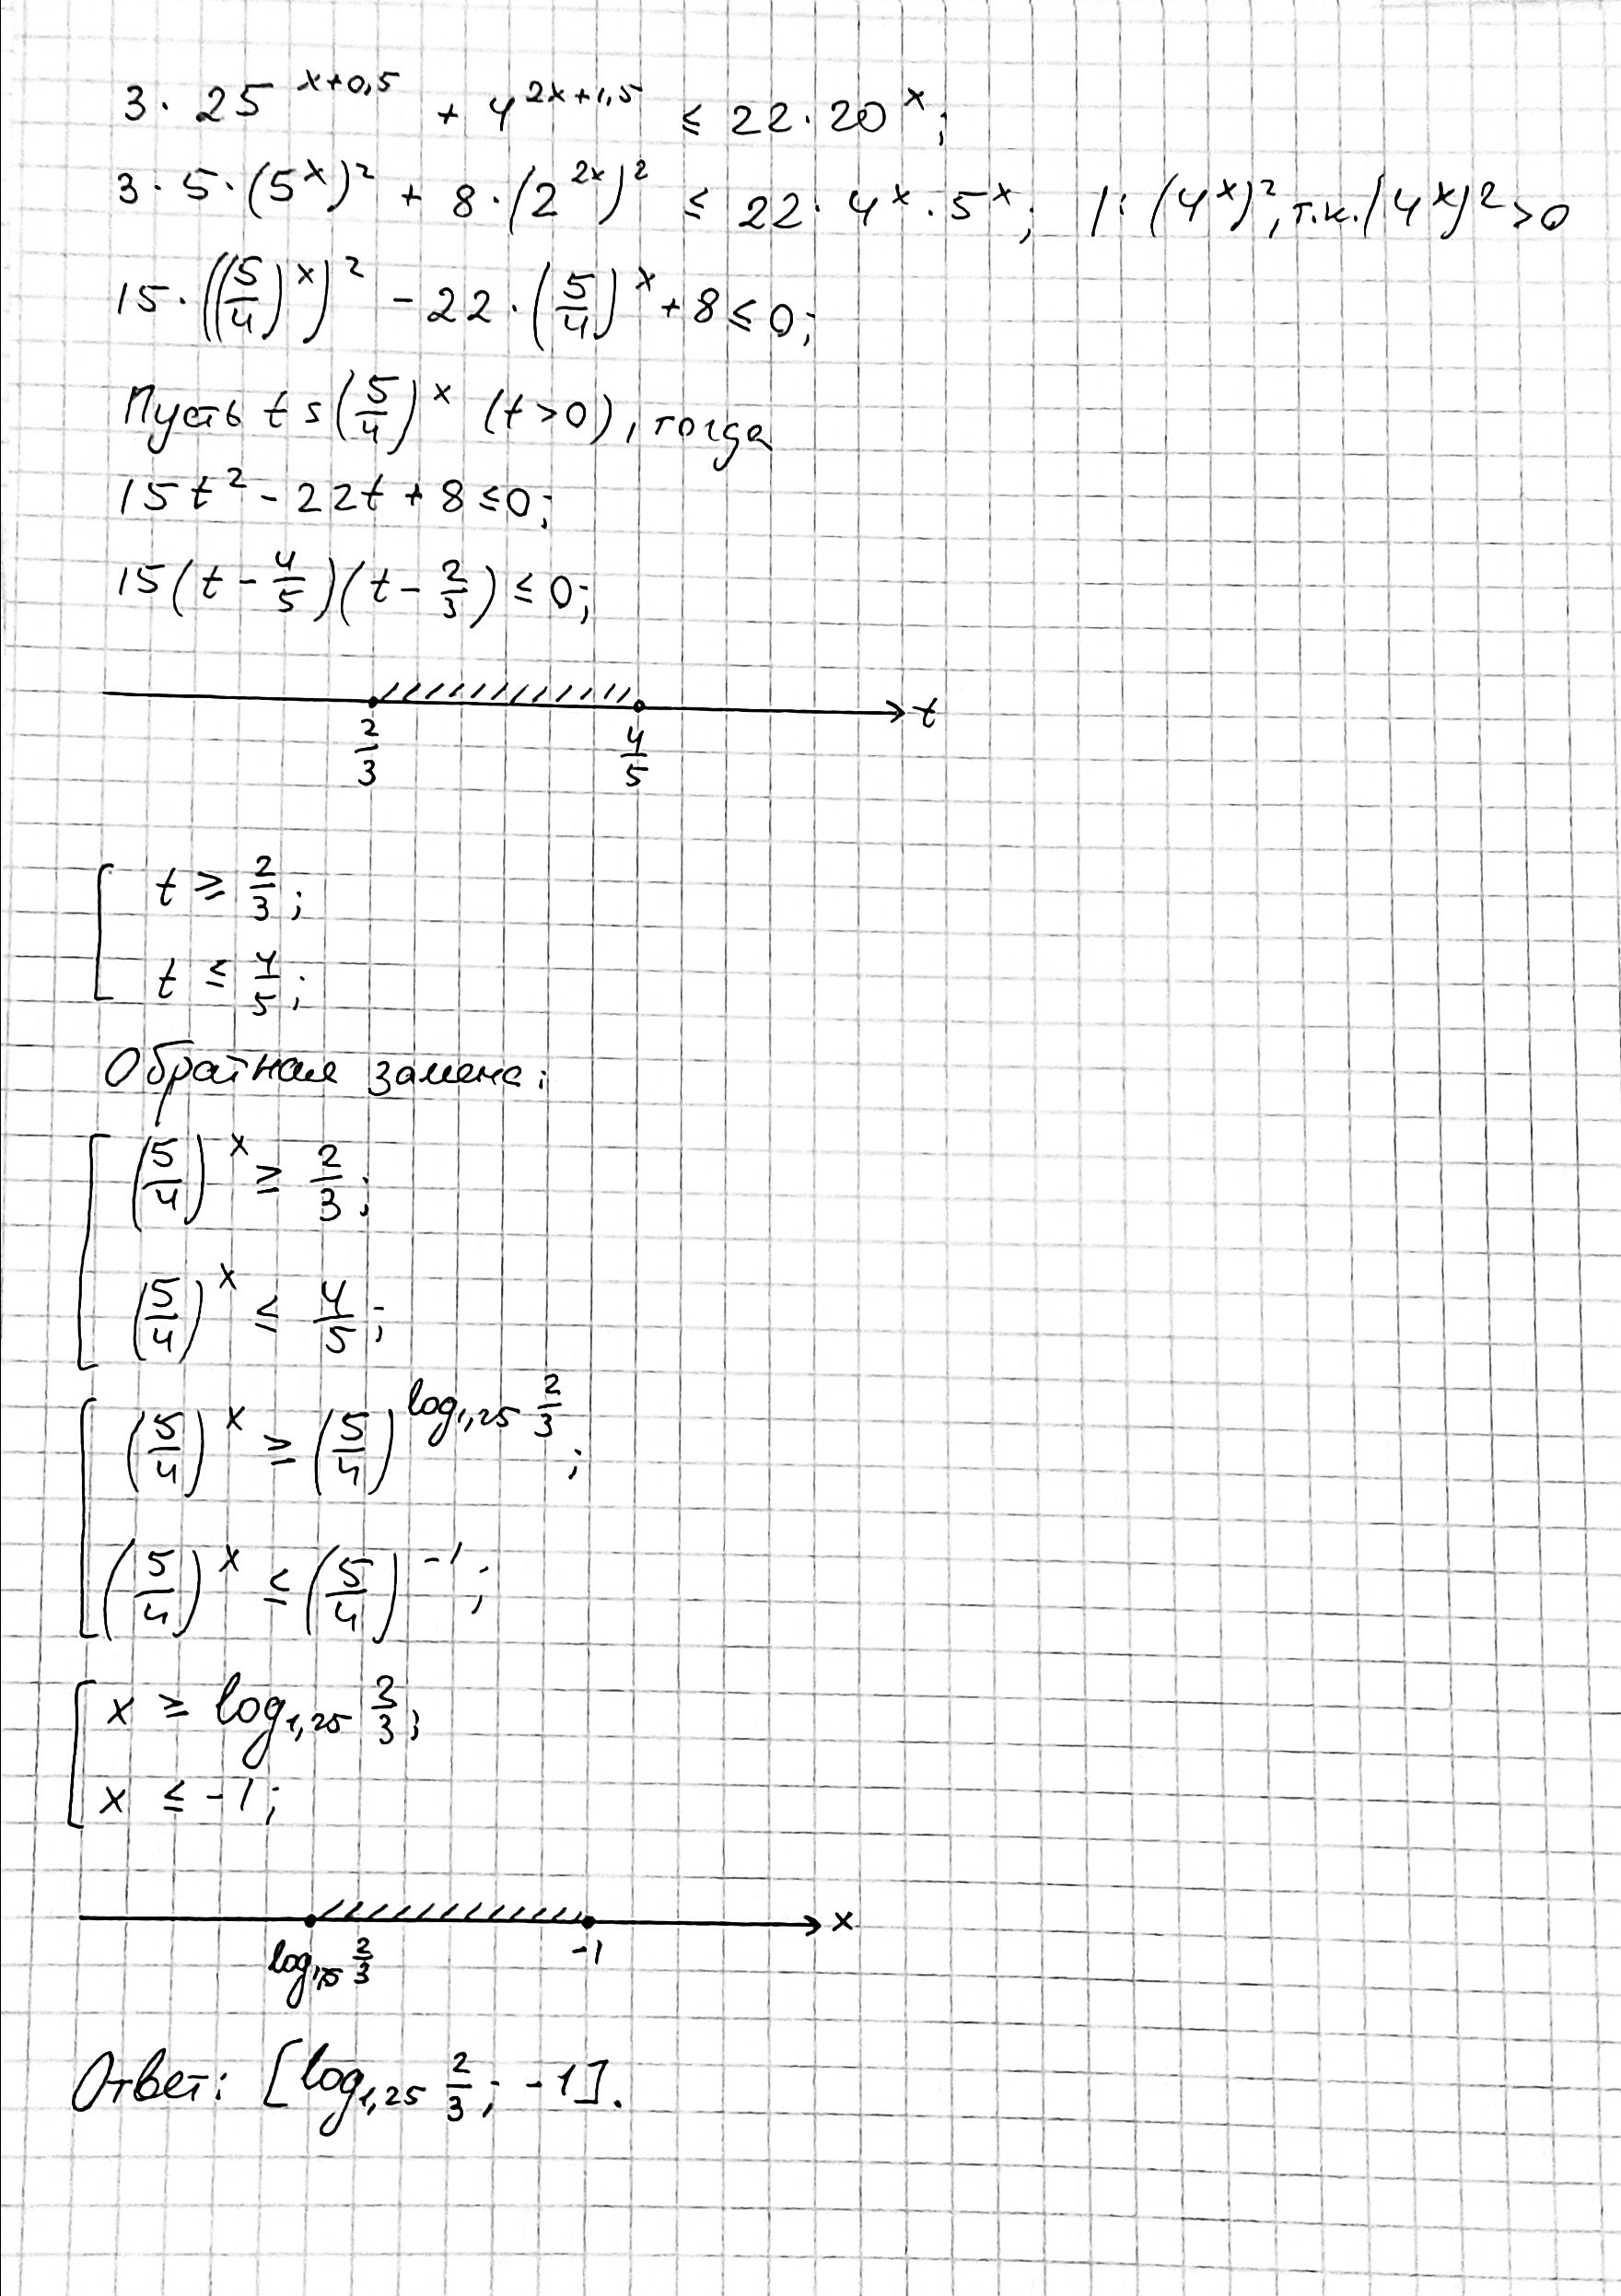 3 · 25^(x+0,5) + 4^(2x+1,5) ≤ 22 · 20^x;
3 · 5 · (5^x)^2 + 8 · (2^(2x))^2 ≤ 22 · 4^x · 5^x; | : (4^x)^2, т.к. (4^x)^2 > 0
15 · ((5/4)^x)^2 - 22 · (5/4)^x + 8 ≤ 0;
Пусть t = (5/4)^x (t > 0), тогда
15t^2 - 22t + 8 ≤ 0;
15(t - 4/5)(t - 2/3) ≤ 0;
2/3 4/5 t
[ t ≥ 2/3;
t ≤ 4/5;
Обратная замена:
[ (5/4)^x ≥ 2/3;
(5/4)^x ≤ 4/5;
[ (5/4)^x ≥ (5/4)^(log_1,25 2/3);
(5/4)^x ≤ (5/4)^(-1);
[ x ≥ log_1,25 2/3;
x ≤ -1;
log_1,25 2/3 -1 x
Ответ: [log_1,25 2/3; -1].